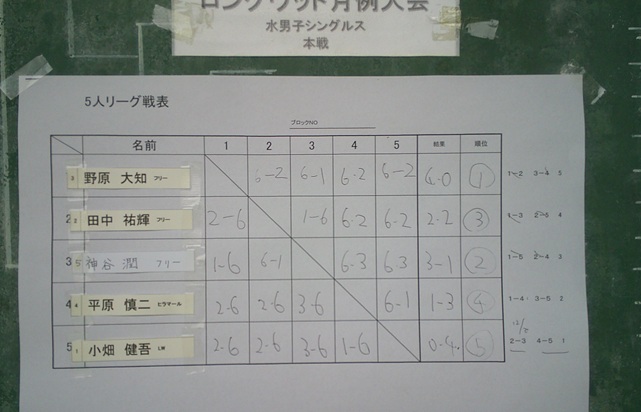 ロングウッド月例大会
水男子シングルス
本戦
5人リーグ戦表
ブロックNO
名前 1 2 3 4 5 結果 順位
3 野原 大知 フリー 6-2 6-1 6-2 6-2 4-0 ① 1-2 3-4 5
2 3 田中 祐輝 フリー 2-6 1-6 6-2 6-2 2-2 ③ 1-3 2-5 4
3 5 神谷 潤 フリー 1-6 6-1 6-3 6-3 3-1 ② 1-5 2-4 3
4 4 平原 慎二 ヒラマール 2-6 2-6 3-6 6-1 1-3 ④ 1-4 3-5 2
5 1 小畑 健吾 2-6 2-6 3-6 1-6 0-4 ⑤ 2-3 4-5 1